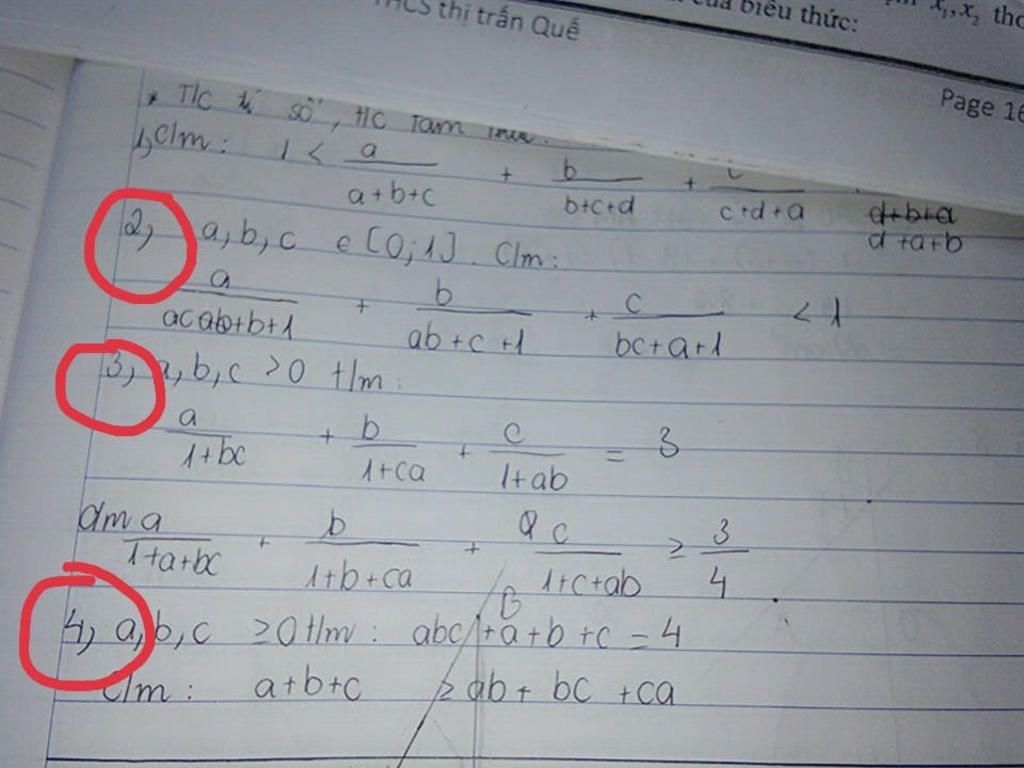 THCS thị trấn Quế
của biểu thức:
x₁, x₂ thc
Page 16
* T/C tỉ số, t/c Tam
1, C/m: 1 < a/(a+b+c) + b/(b+c+d) + c/(c+d+a) d+b+a
d+a+b
2, a,b,c ∈ [0;1]. C/m:
a/(ab+b+1) + b/(ab+c+1) + c/(bc+a+1) < 1
3, a,b,c >0 t/m:
a/(1+bc) + b/(1+ca) + c/(1+ab) = 3
C/m a/(1+a+bc) + b/(1+b+ca) + c/(1+c+ab) ≥ 3/4
B
4, a,b,c ≥0 t/m: abc+a+b+c = 4
C/m: a+b+c ≥ ab+ bc +ca